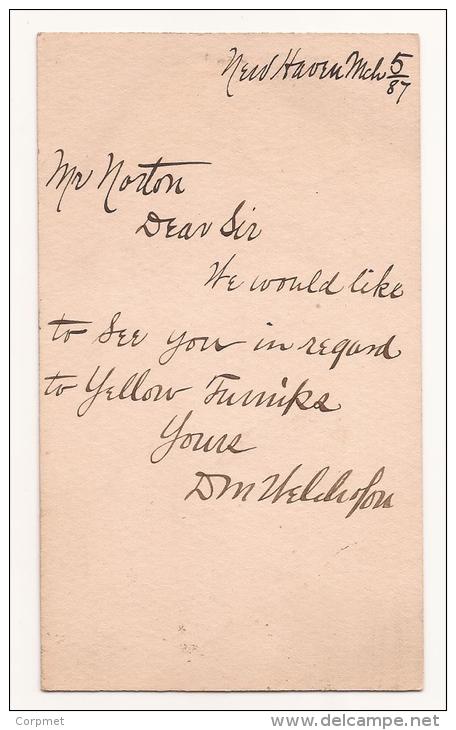 New Haven Mch 5/87
Mr Norton
Dear Sir
We would like
to see you in regard
to Yellow Turnips
Yours
D M Welch & Son
Corpmet
delcampe.net